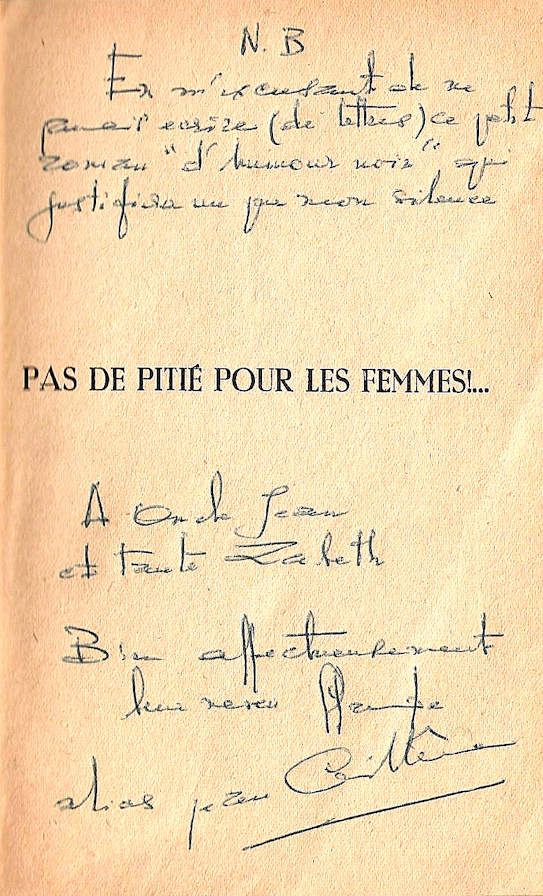 N. B
En m'excusant de ne
jamais ecrire (de lettres) ce petit
roman "d'humour noir" qui
justifiera un peu mon silence
PAS DE PITIÉ POUR LES FEMMES!...
A Oncle Jean
et tante Zabeth
Bien affectueusement
leur neveu
alias jean